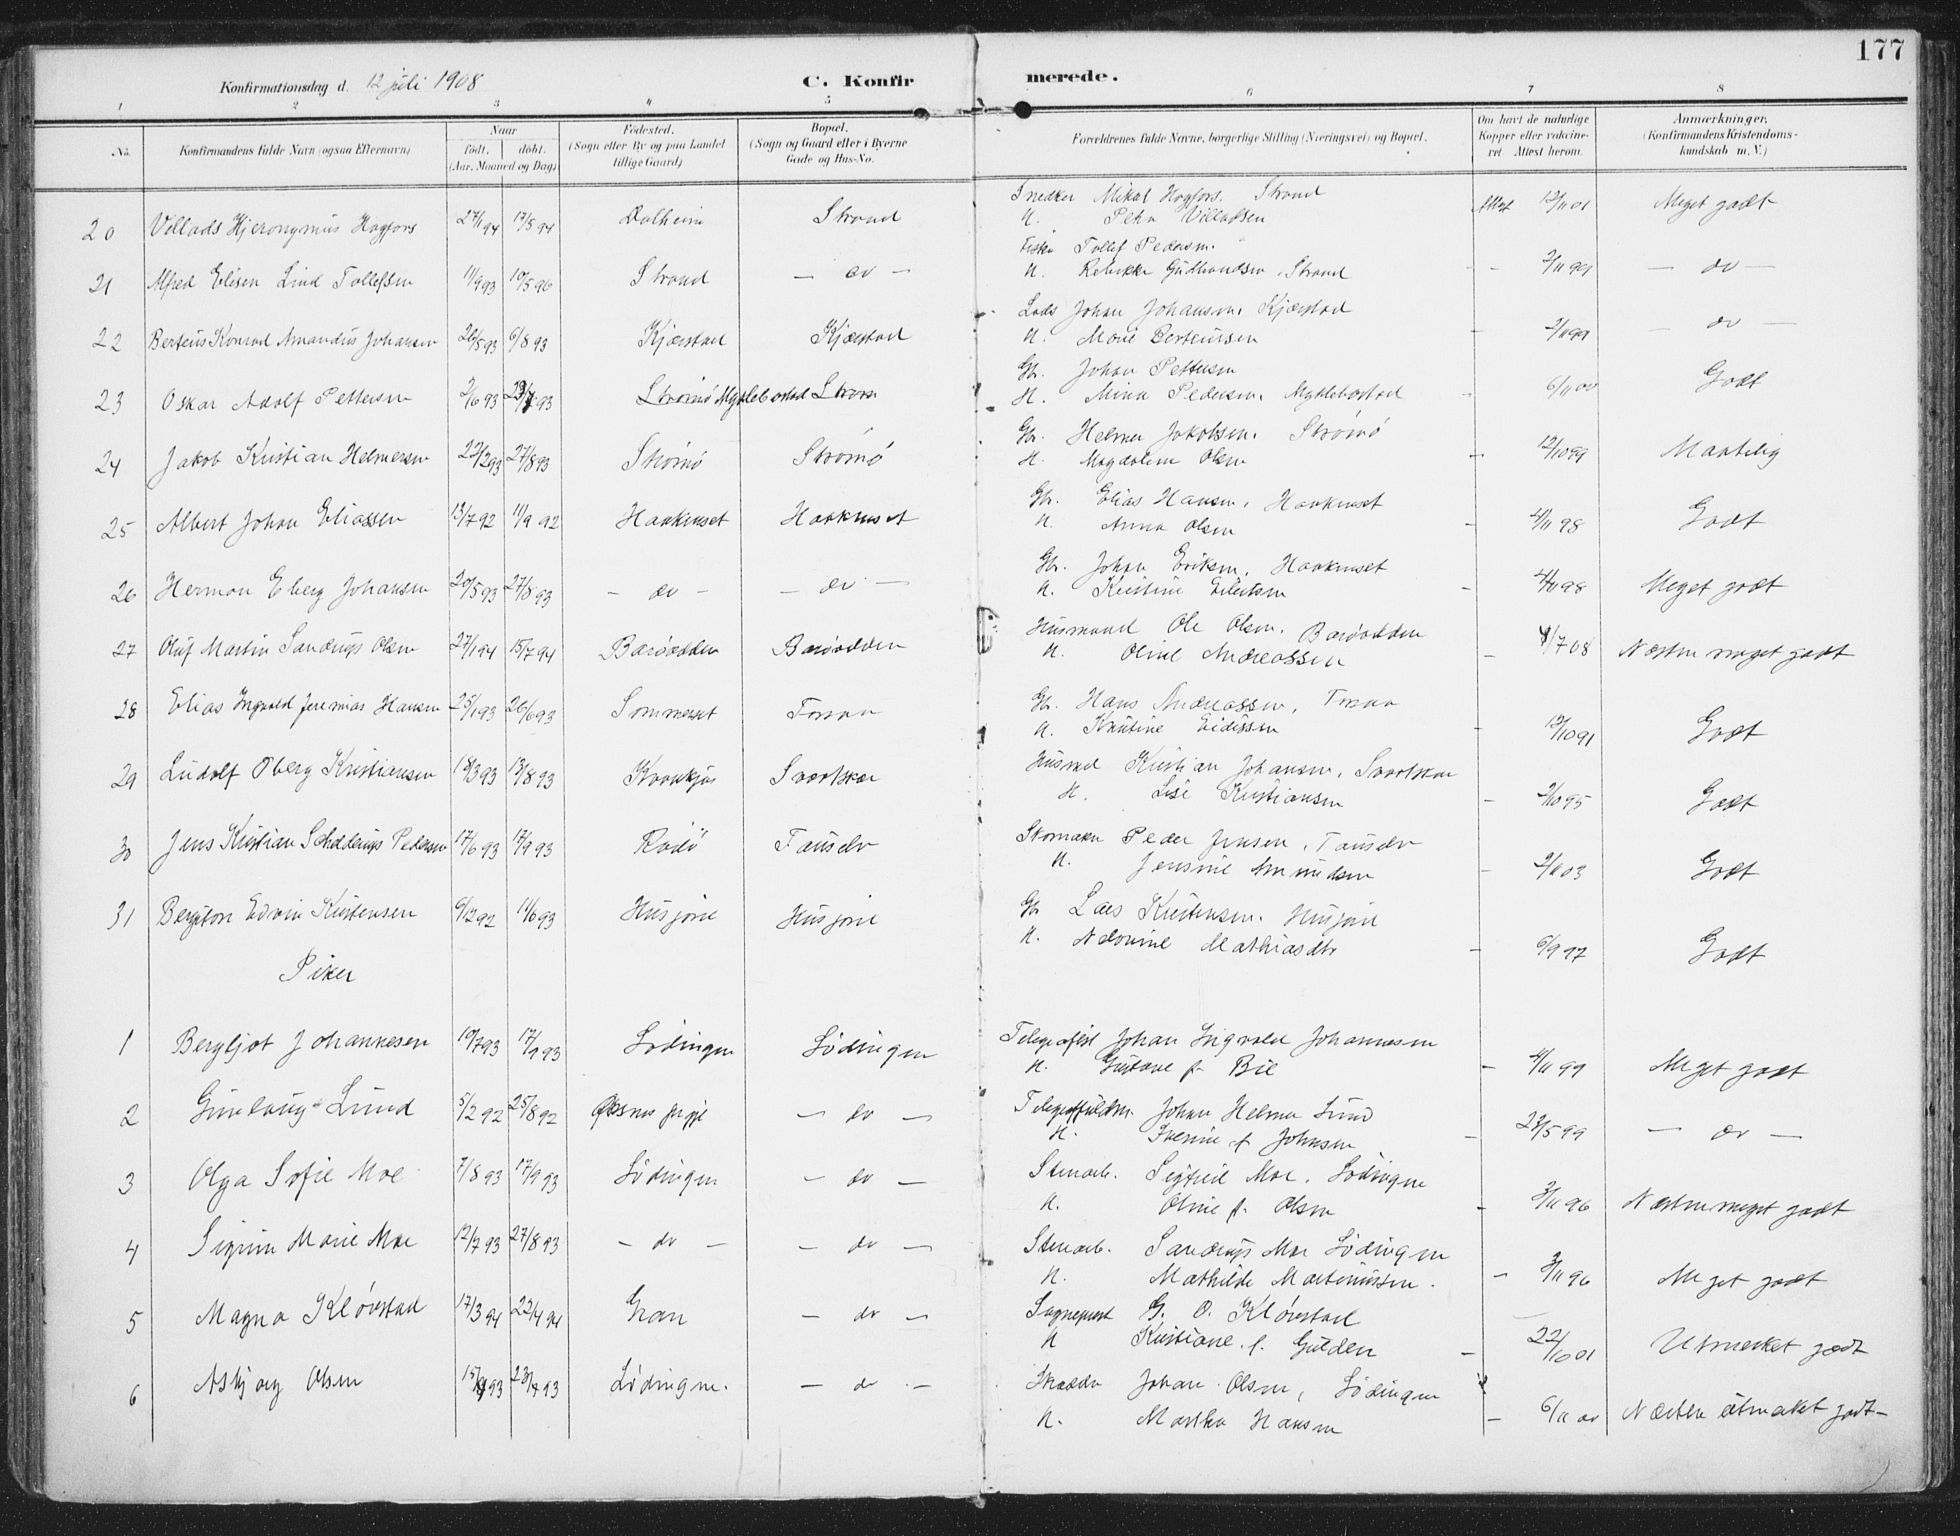 177
Konfirmationsdag d. 12 juli 1908
C. Konfirmerede.
1 2 3 4 5 6 7 8
No. Konfirmandens fulde Navn (ogsaa Efternavn) Naar født. døbt. (Aar, Maaned og Dag) Fødested. (Sogn eller By og paa Landet tillige Gaard) Bopæl. (Sogn og Gaard eller i Byerne Gade og Hus-No. Forældrenes fulde Navne, borgerlige Stilling (Næringsvei) og Bopæl. Om havt de naturlige Kopper eller vakcineret Attest herom. Anmærkninger. (Konfirmandens Kristendomskundskab m. V.)
20 Villads Hjeronymus Hagfors 27/1 94 17/5 94 Dalheim Strand Snedker Mikal Hagfors. Strand Attest 12/11 01 Meget godt
H. Petra Villadsen
21 Alfred Elisen Lind Tollefsen 11/9 93 10/5 96 Strand - do - Fisker Tollef Pedersen.
H. Rebekka Gudmundsen, Strand - 2/11 99 - do -
22 Berteus Konrad Amandus Johansen 26/5 93 6/8 93 Kjærstad Kjærstad Lods Johan Johansen. Kjærstad
H. Marie Berteussen - 2/11 99 - do -
23 Oskar Adolf Pettersen 2/6 93 23/7 93 Strømø Myklebostad Gbr. Johan Pettersen
H. Mina Pedersen. Myklebostad - 6/11 00 Godt
24 Jakob Kristian Helmersen 22/2 93 27/8 93 Strømø Strømø Gbr. Helmer Jakobsen. Strømø
H. Magdalene Olsen - 12/10 99 Maatelig
25 Albert Johan Eliassen 13/7 92 11/9 92 Haakenset Haakenset Gbr. Elias Hansen, Haakenset
H. Anna Olsen - 4/11 98 Godt
26 Herman Eberg Johansen 20/5 93 27/8 93 - do - - do - Gbr. Johan Eriksen, Haakenset
H. Kristine Eilertsen - 4/11 98 Meget godt
27 Oluf Martin Sandrup Olsen 27/1 94 15/7 94 Barøodden Barøodden Husmand Ole Olsen. Barøodden
H. Oline Andreassen - 8/7 08 Næsten meget godt
28 Elias Ingvald Jeremias Hansen 25/1 93 26/6 93 Sommerset Forsaa Gbr. Hans Andreassen, Forsaa
H. Knutine Eidissen - 12/10 91 Godt
29 Ludolf Oberg Kristiansen 18/3 93 13/8 93 Svartskar Husmd Kristian Johansen, Svartskar
H. Lise Kristiansen - 2/10 95 Godt
30 Jens Kristian Schelderup Pedersen 17/6 93 17/9 93 Rødø Skomaker Peder Jensen,
H. Jensine Amundsen - 2/11 03 Godt
31 Edvin Kristensen 6/12 92 11/6 93 Husjorie Husjorie Gbr Laes Kristensen. Husjorie
H. Mathiasdtr - 6/9 97 Godt
Piker
1 Bergljot Johannesen 10/7 93 17/9 93 Lødingen Lødingen Telegrafist Johan Ingvald Johannesen
H. Gustava f. Bie - 4/11 99 Meget godt
2 Gunlaug Lund 5/2 92 25/8 92 - do - Johan Helmer Lund
H. f Johnsen - 23/5 99 - do -
3 Olga Sofie Moe 7/8 93 17/9 93 Lødingen - do - Stenarb. Sigfred Moe. Lødingen
H. Oline f. Olsen - 3/11 96 Næsten meget godt
4 Sigrun Marie Moe 12/7 93 27/8 93 - do - - do - Stenarb. Sandrup Moe Lødingen
H. Mathilde Martinussen. - 3/11 96 Meget godt
5 Magna Kløvstad 17/3 94 22/4 94 Gran - do - Sogneprest G. O. Kløvstad
H Kristiane f. Gulden - 22/10 01 Utmerket godt
6 Asbjørg Olsen 15/4 93 23/7 93 Lødingen. - do - Skrædder Johan Olsen, Lødingen
H. Martha Hansen - 6/11 00 Næsten utmerket godt